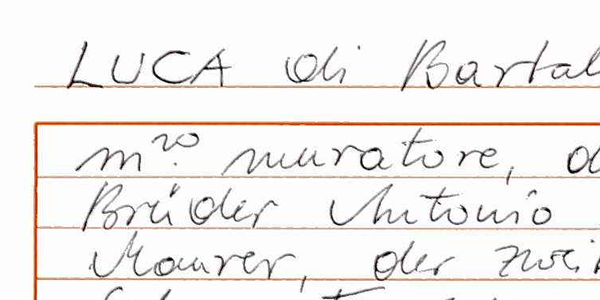 LUCA di Bartal
m.ro muratore, d
Brüder Antonio
Maurer, der zwei